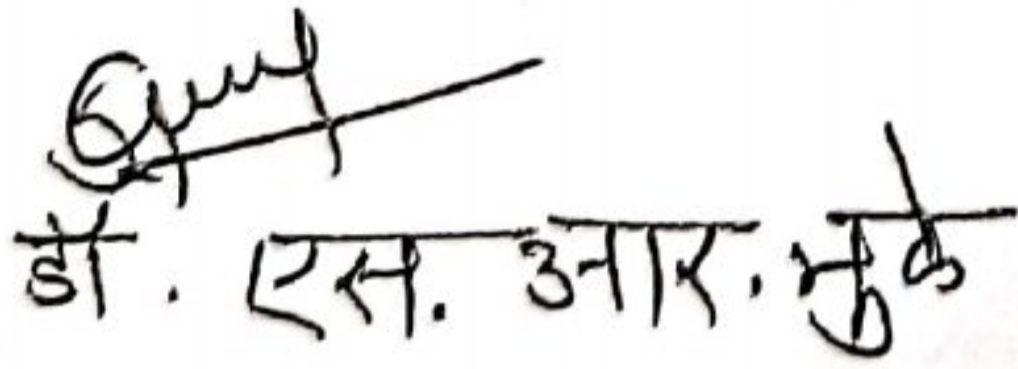 डॉ. एस. आर. मुके